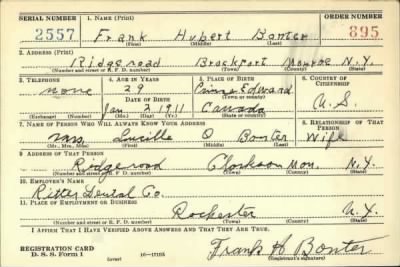 SERIAL NUMBER 1. NAME (Print) ORDER NUMBER
2557 Frank Hubert Bonter 895
(First) (Middle) (Last)
2. ADDRESS (Print)
Ridgeroad Brockport Monroe N.Y.
(Number and street or R. F. D. number) (Town) (County) (State)
3. TELEPHONE 4. AGE IN YEARS 5. PLACE OF BIRTH 6. COUNTRY OF CITIZENSHIP
none 29 Prince Edward
DATE OF BIRTH (Town or county)
Jan 2 1911 Canada U.S.
(Exchange) (Number) (Mo.) (Day) (Yr.) (State or country)
7. NAME OF PERSON WHO WILL ALWAYS KNOW YOUR ADDRESS 8. RELATIONSHIP OF THAT PERSON
Mrs Lucille O Bonter Wife
(Mr., Mrs., Miss) (First) (Middle) (Last)
9. ADDRESS OF THAT PERSON
Ridgeroad Clarkson Mon. N.Y.
(Number and street or R. F. D. number) (Town) (County) (State)
10. EMPLOYER'S NAME
Ritter Dental Co.
11. PLACE OF EMPLOYMENT OR BUSINESS
Rochester N.Y.
(Number and street or R. F. D. number) (Town) (County) (State)
I AFFIRM THAT I HAVE VERIFIED ABOVE ANSWERS AND THAT THEY ARE TRUE.
REGISTRATION CARD
D. S. S. Form 1 (over) 16—17105 Frank H Bonter
(Registrant's signature)